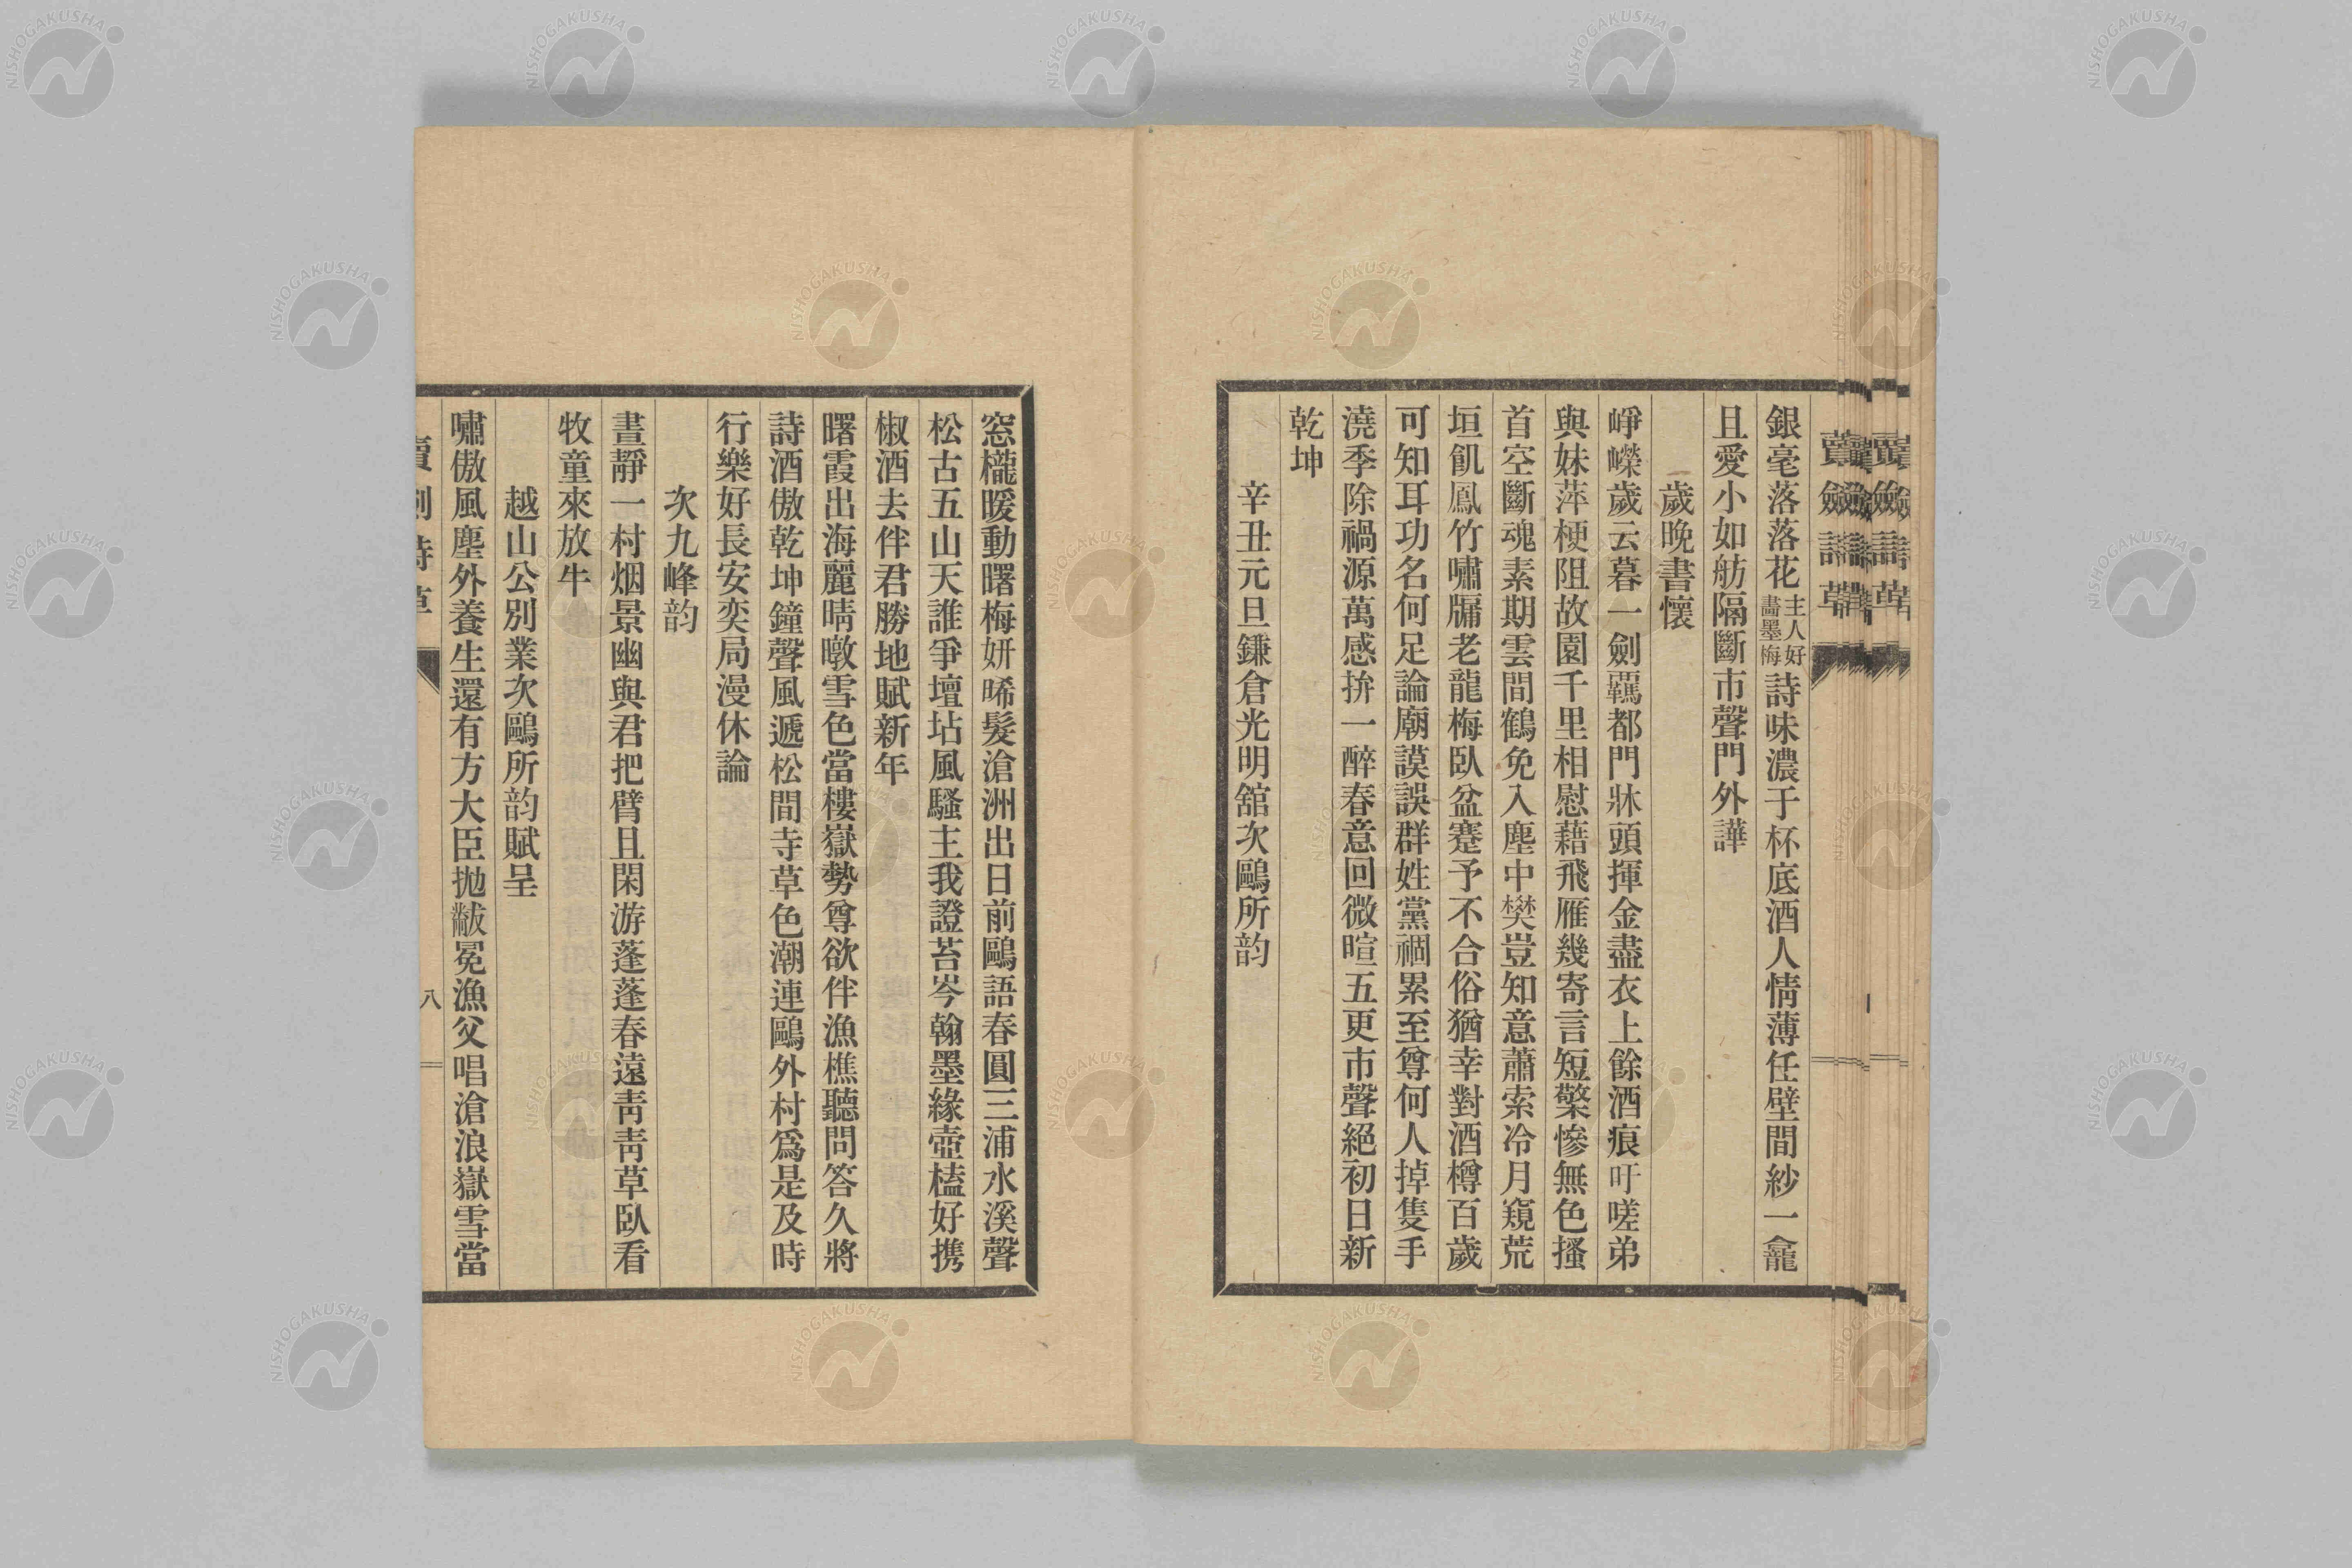 銀毫落落花主人好畫墨梅詩味濃于杯底酒人情薄任壁間紗一龕
且愛小如舫隔斷市聲門外譁
歲晩書懷
崢嶸歲云暮一劍羈都門牀頭揮金盡衣上餘酒痕吁嗟弟
與妹萍梗阻故園千里相慰藉飛雁幾寄言短檠慘無色搔
首空斷魂素期雲間鶴免入塵中樊豈知意蕭索冷月窺荒
垣飢鳳竹嘯牖老龍梅臥盆蹇予不合俗猶幸對酒樽百歲
可知耳功名何足論廟謨誤群姓黨禍累至尊何人掉隻手
澆季除禍源萬感拚一醉春意回微暄五更市聲絕初日新
乾坤
辛丑元旦鎌倉光明舘次鷗所韵
窓櫳暖動曙梅妍晞髮滄洲出日前鷗語春圓三浦水溪聲
松古五山天誰爭壇坫風騷主我證苔岑翰墨緣壺榼好携
椒酒去伴君勝地賦新年
曙霞出海麗晴暾雪色當樓嶽勢尊欲伴漁樵聽問答久將
詩酒傲乾坤鐘聲風遞松間寺草色潮連鷗外村爲是及時
行樂好長安奕局漫休論
次九峰韵
晝靜一村烟景幽與君把臂且閑游蓬蓬春遠靑靑草臥看
牧童來放牛
越山公別業次鷗所韵賦呈
嘯傲風塵外養生還有方大臣拋黻冕漁父唱滄浪嶽雪當
八
賣劍詩草
NISHOGAKUSHA